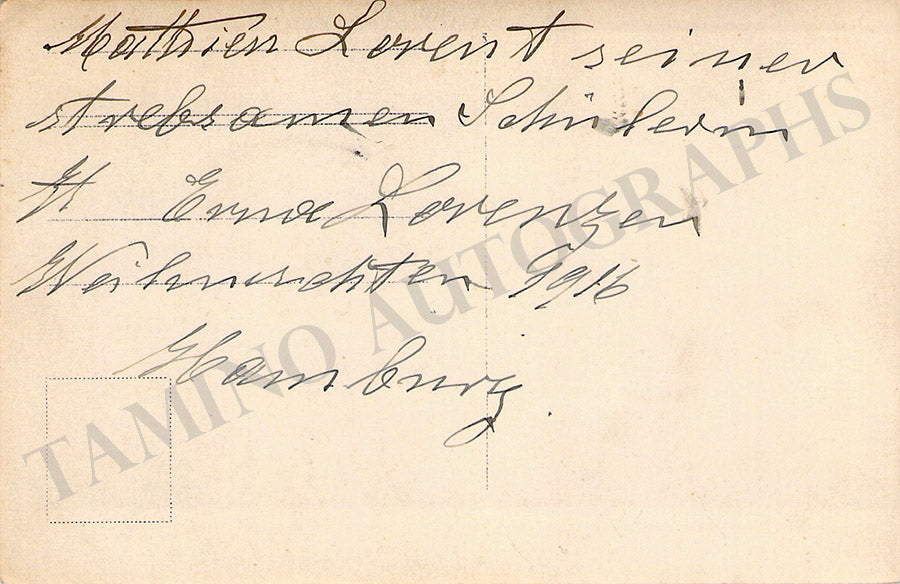 Mathieu Lorent seiner
strebsamen Schülerin
Erna Lorenzen
Weihnachten 1916
Hamburg.
TAMINO AUTOGRAPHS